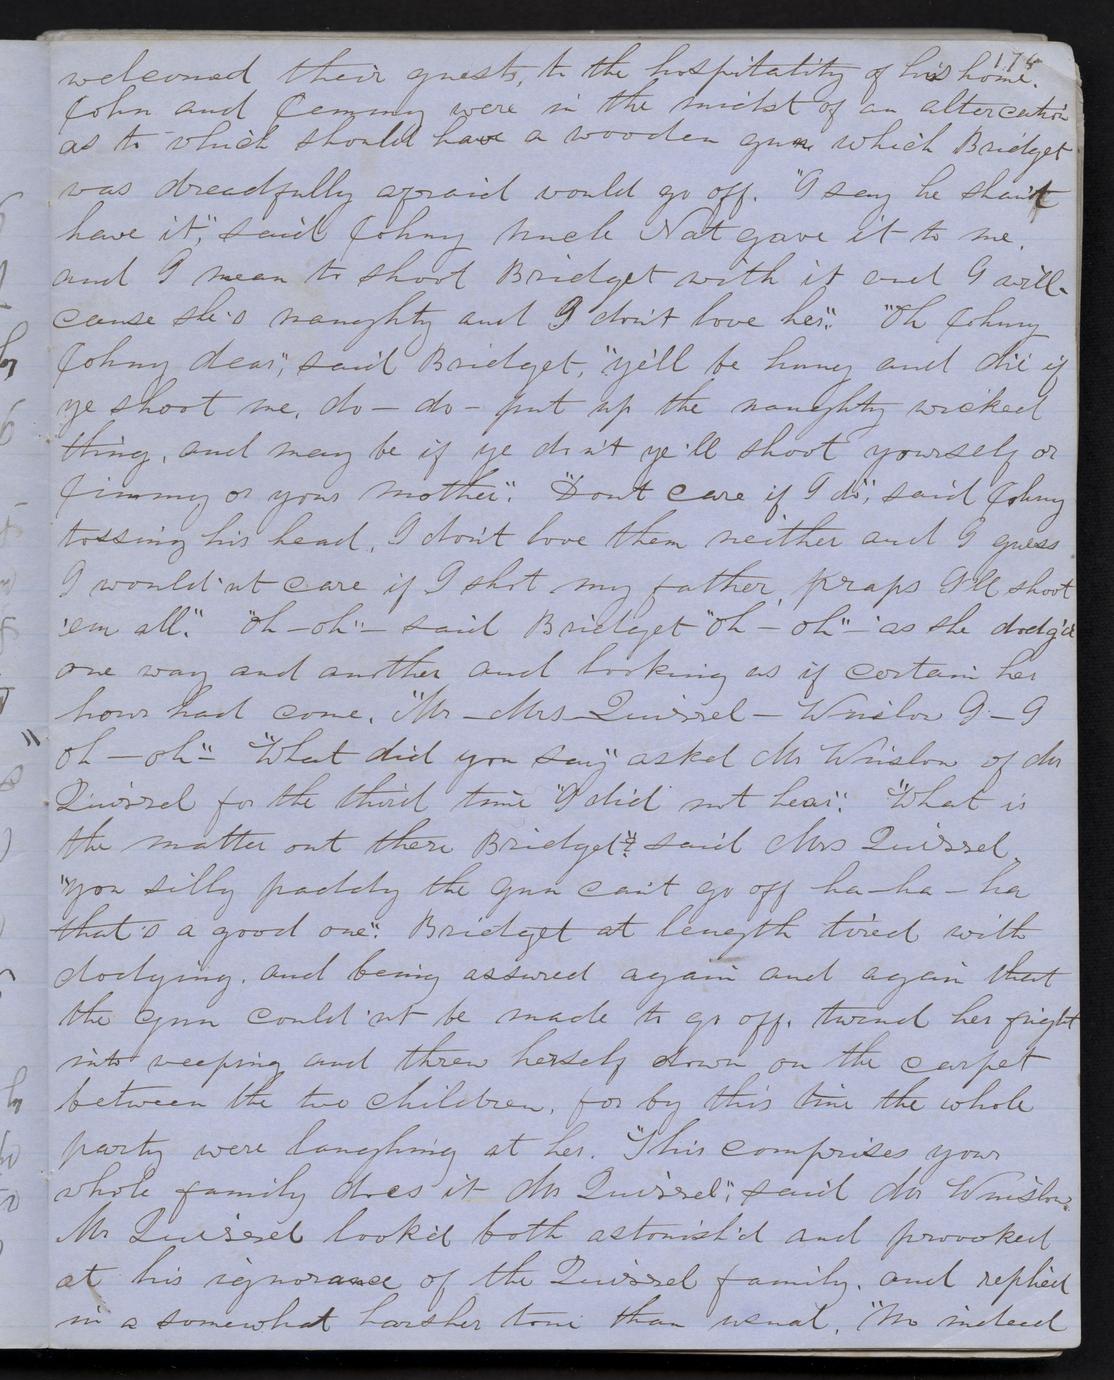 174
welcomed their guests, to the hospitality of his home.
John and Jemmy were in the midst of an altercation
as to which should have a wooden gun which Bridget
was dreadfully afraid would go off. "I say he shan't
have it", said Johny Uncle Nat gave it to me,
and I mean to shoot Bridget with it and I will
cause she's naughty and I don't love her". "Oh Johny
Johny dear", said Bridget, "ye'll be hung and die if
ye shoot me, do – do – put up the naughty wicked
thing, and may be if ye dont ye'll shoot yourself or
Jimmy or your mother". "Dont care if I do", said Johny
tossing his head, I don't love them neither and I guess
I would'nt care if I shot my father, praps I'll shoot
'em all". "Oh – oh" – said Bridget "oh – oh" – as she dodg'd
one way and another and looking as if certain her
hour had come, "Mr – Mrs – Quirrel – Winslow I – I
oh – oh" – "What did you say" asked Mr Winslow of Mr
Quirrel for the third time "I did not hear". "What is
the matter out there Bridget"? said Mrs Quirrel,
"you silly paddy the gun can't go off ha – ha – ha
that's a good one". Bridget at length tired with
dodging, and being assured again and again that
the gun could'nt be made to go off, turned her fright
into weeping and threw herself down on the carpet
between the two children, for by this time the whole
party were laughing at her. "This comprises your
whole family does it Mr Quirrel", said Mr Winslow.
Mr Quirrel look'd both astonish'd and provoked
at his ignorance of the Quirrel family, and replied
in a somewhat harsher tone than usual, "No indeed